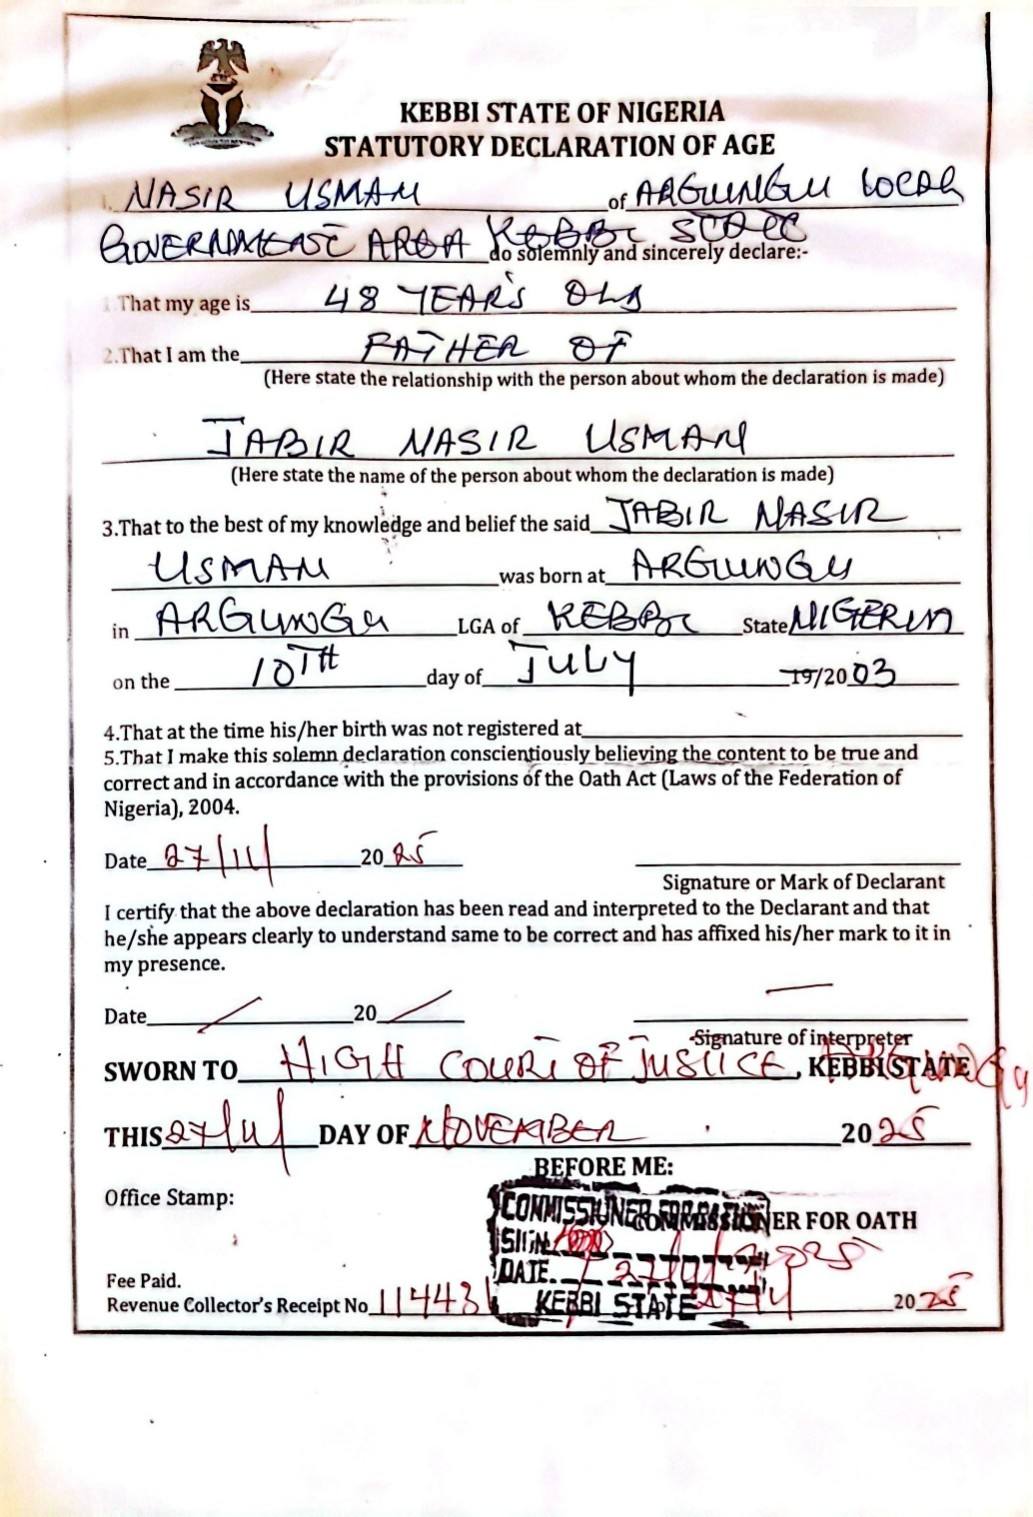 KEBBI STATE OF NIGERIA
STATUTORY DECLARATION OF AGE
1. NASIR USMAN of ARGUNGU LOCAL
GOVERNMENT AREA KEBBI STATE do solemnly and sincerely declare:-
1 That my age is 48 YEAR'S OLD
2.That I am the FATHER OF
(Here state the relationship with the person about whom the declaration is made)
JABIR NASIR USMAN
(Here state the name of the person about whom the declaration is made)
3.That to the best of my knowledge and belief the said JABIR NASIR
USMAN was born at ARGUNGU
in ARGUNGU LGA of KEBBI State NIGERIA
on the 10TH day of JULY 19/20 03
4.That at the time his/her birth was not registered at
5.That I make this solemn declaration conscientiously believing the content to be true and
correct and in accordance with the provisions of the Oath Act (Laws of the Federation of
Nigeria), 2004.
Date 27/11/ 20 25
Signature or Mark of Declarant
I certify that the above declaration has been read and interpreted to the Declarant and that
he/she appears clearly to understand same to be correct and has affixed his/her mark to it in
my presence.
Date 20
Signature of interpreter
SWORN TO HIGH COURT OF JUSTICE, KEBBI STATE
THIS 27/11/ DAY OF NOVEMBER 20 25
BEFORE ME:
Office Stamp:
COMMISSIONER FOR OATH
COMMISSIONER FOR OATH
SIGN
DATE.
Fee Paid.
Revenue Collector's Receipt No 114431
KEBBI STATE 27/11 20 25